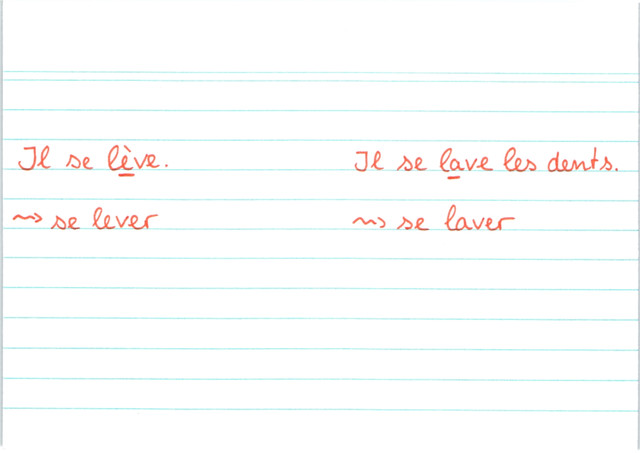 Il se lève. Il se lave les dents.
~> se lever ~> se laver